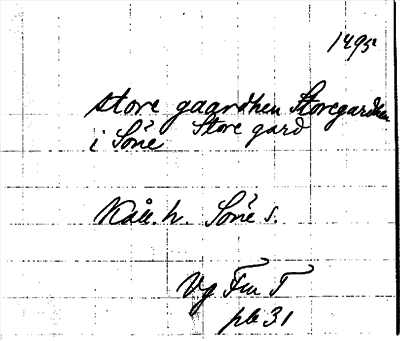 1495
store gaardhen Storegardhen
i Söne Store gard
Kåll. h. Söne s.
Vg Fru T
pb 31